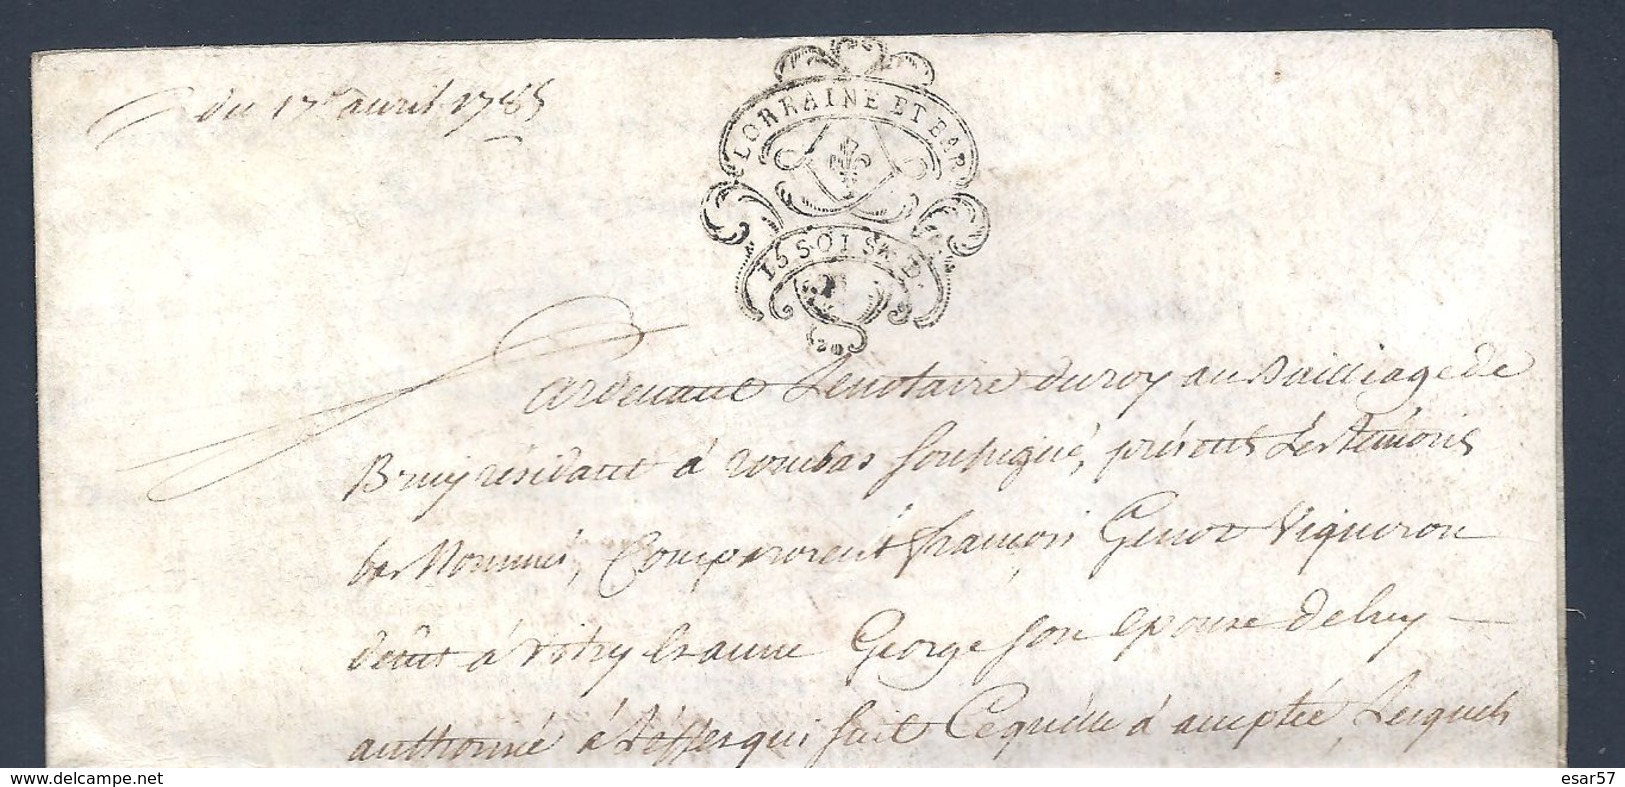 du 17e avril 1785
LORRAINE ET BAR
15 SOLS 8. D.
Pardevant Le notaire du roy au Bailliage de
Briey résidant à rombas soussigné, présents Les témoins
bas Nommés, Comparurent françois Genot Vigneron
demt à vitry et anne George son epouse de luy
authorisé à L'effet qui suit Ce qu'elle à acceptée, Lesquels
www.delcampe.net
esar57